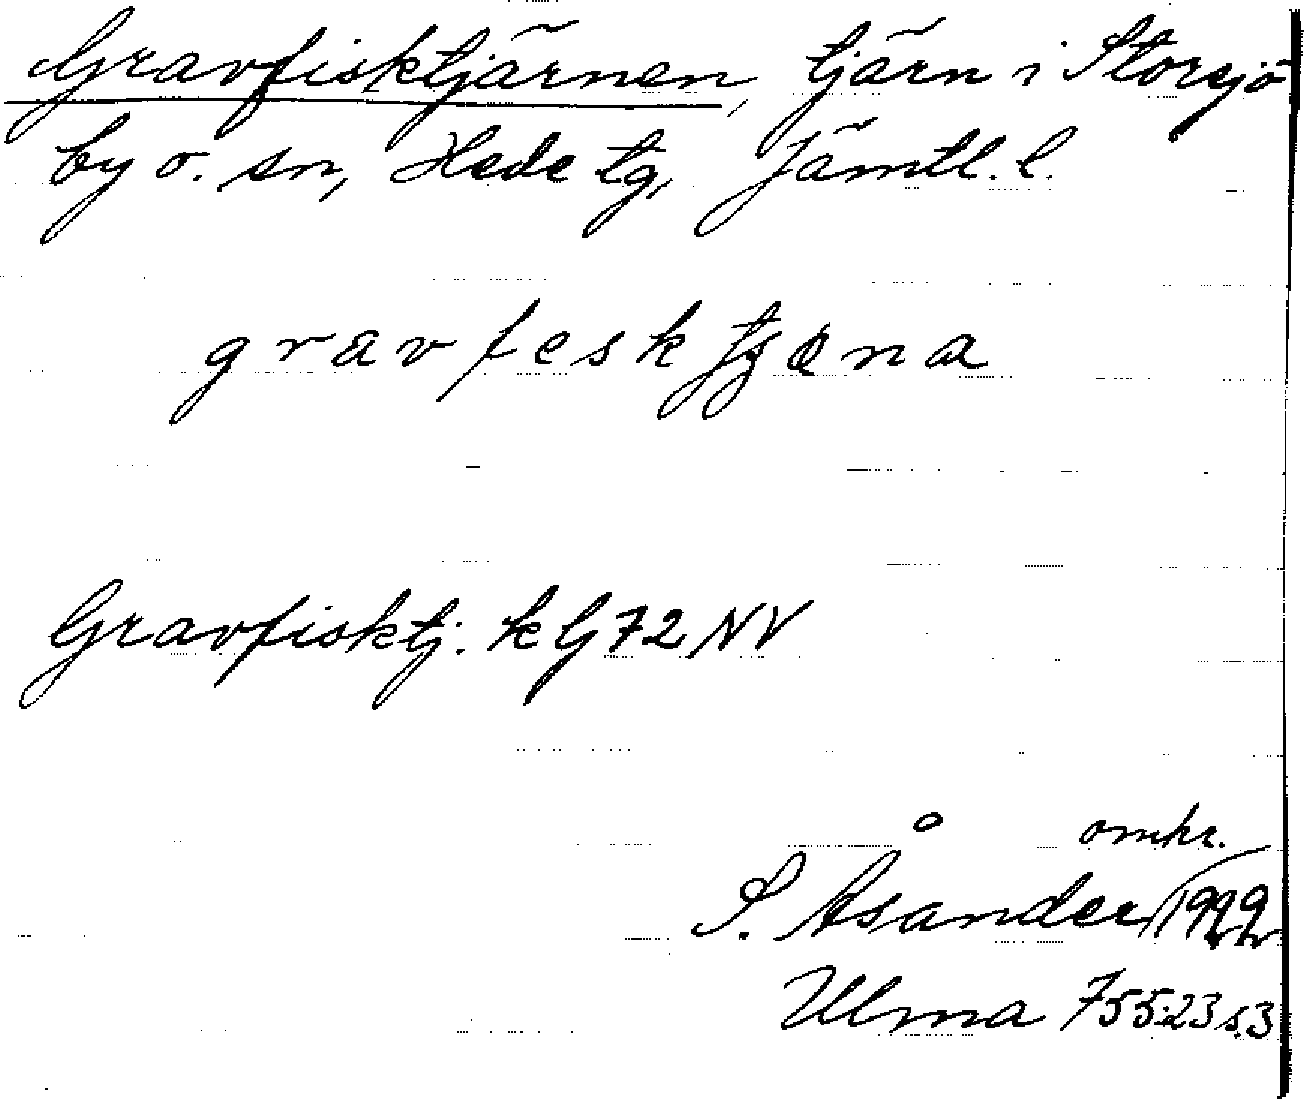 Gravfisktjärnen, tjärn i Storsjö
by o. sn, Hede tg, Jämtl. l.
gravfesktjæna
Gravfisktj. k G72 NV
omkr.
S. Åsander
Ulma 755:23 s.3